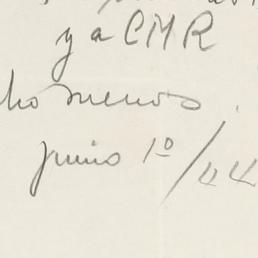 y a CMR
ho menos.
junio 1º/44